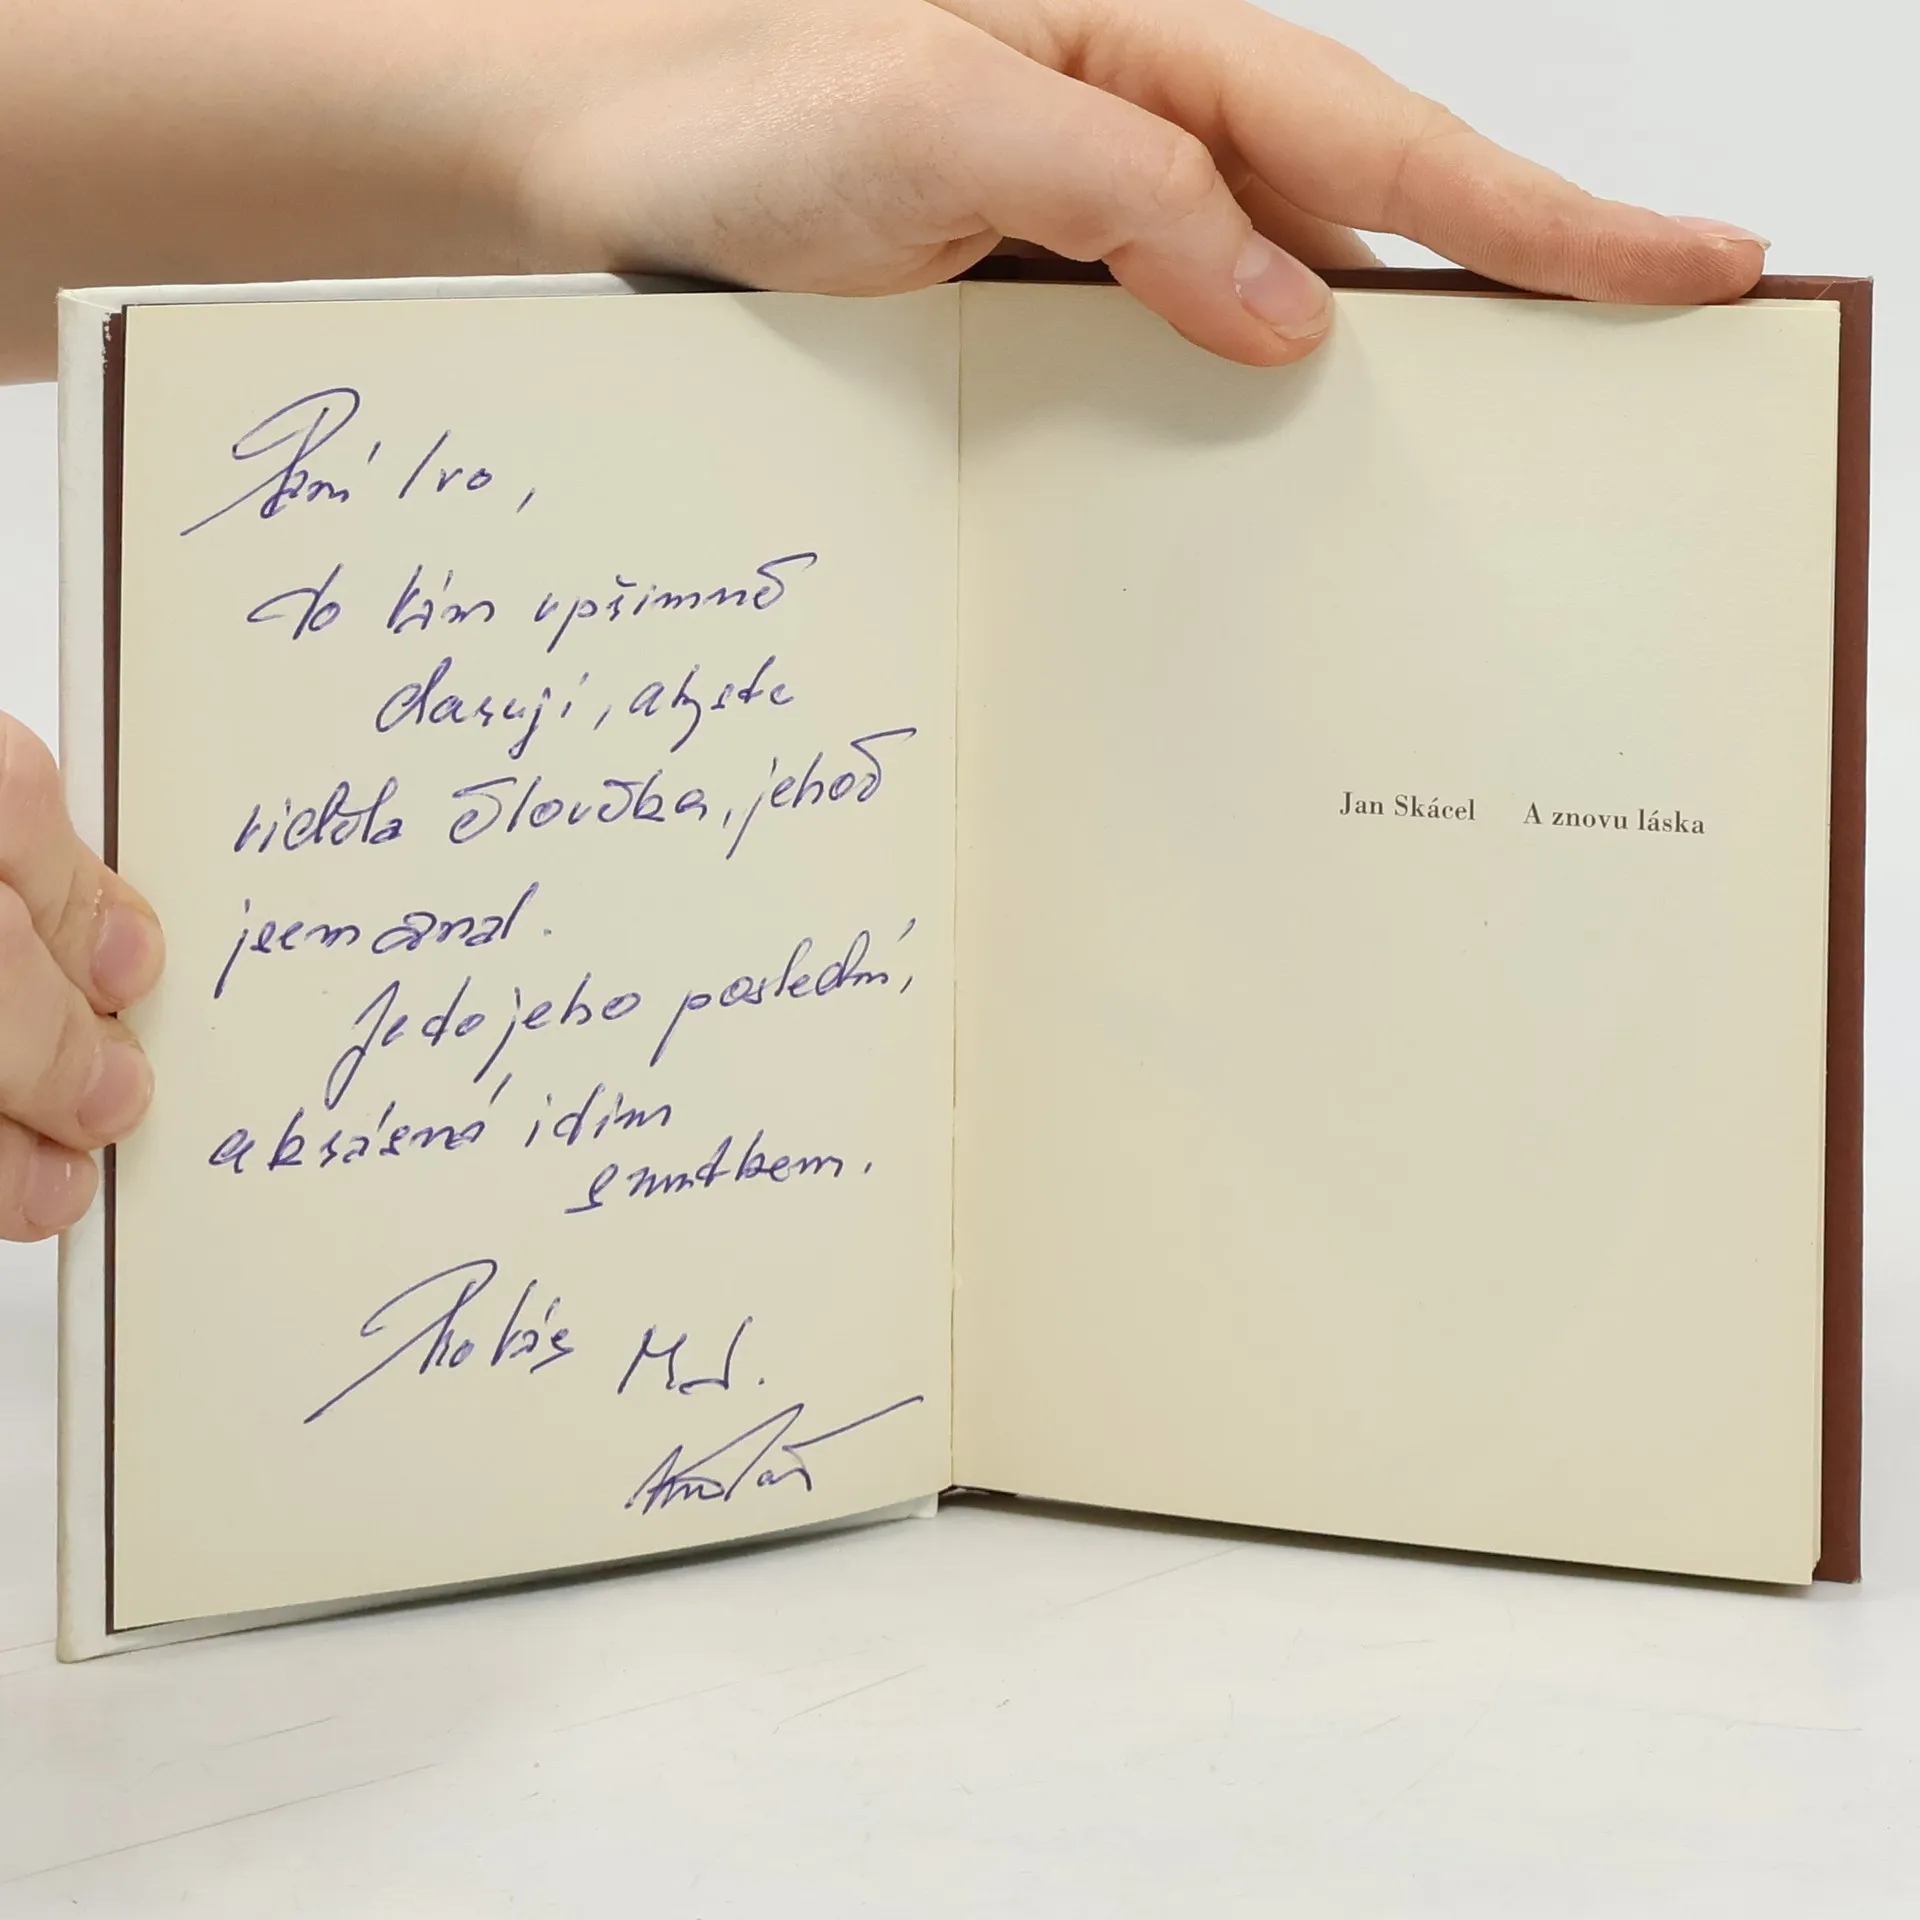 Paní Ivo,
to Vám upřimně
daruji, abyste
viděla člověka, jehož
jsem znal.
Je to jeho poslední,
a krásná
smutkem.
M. J.
Jan Skácel A znovu láska